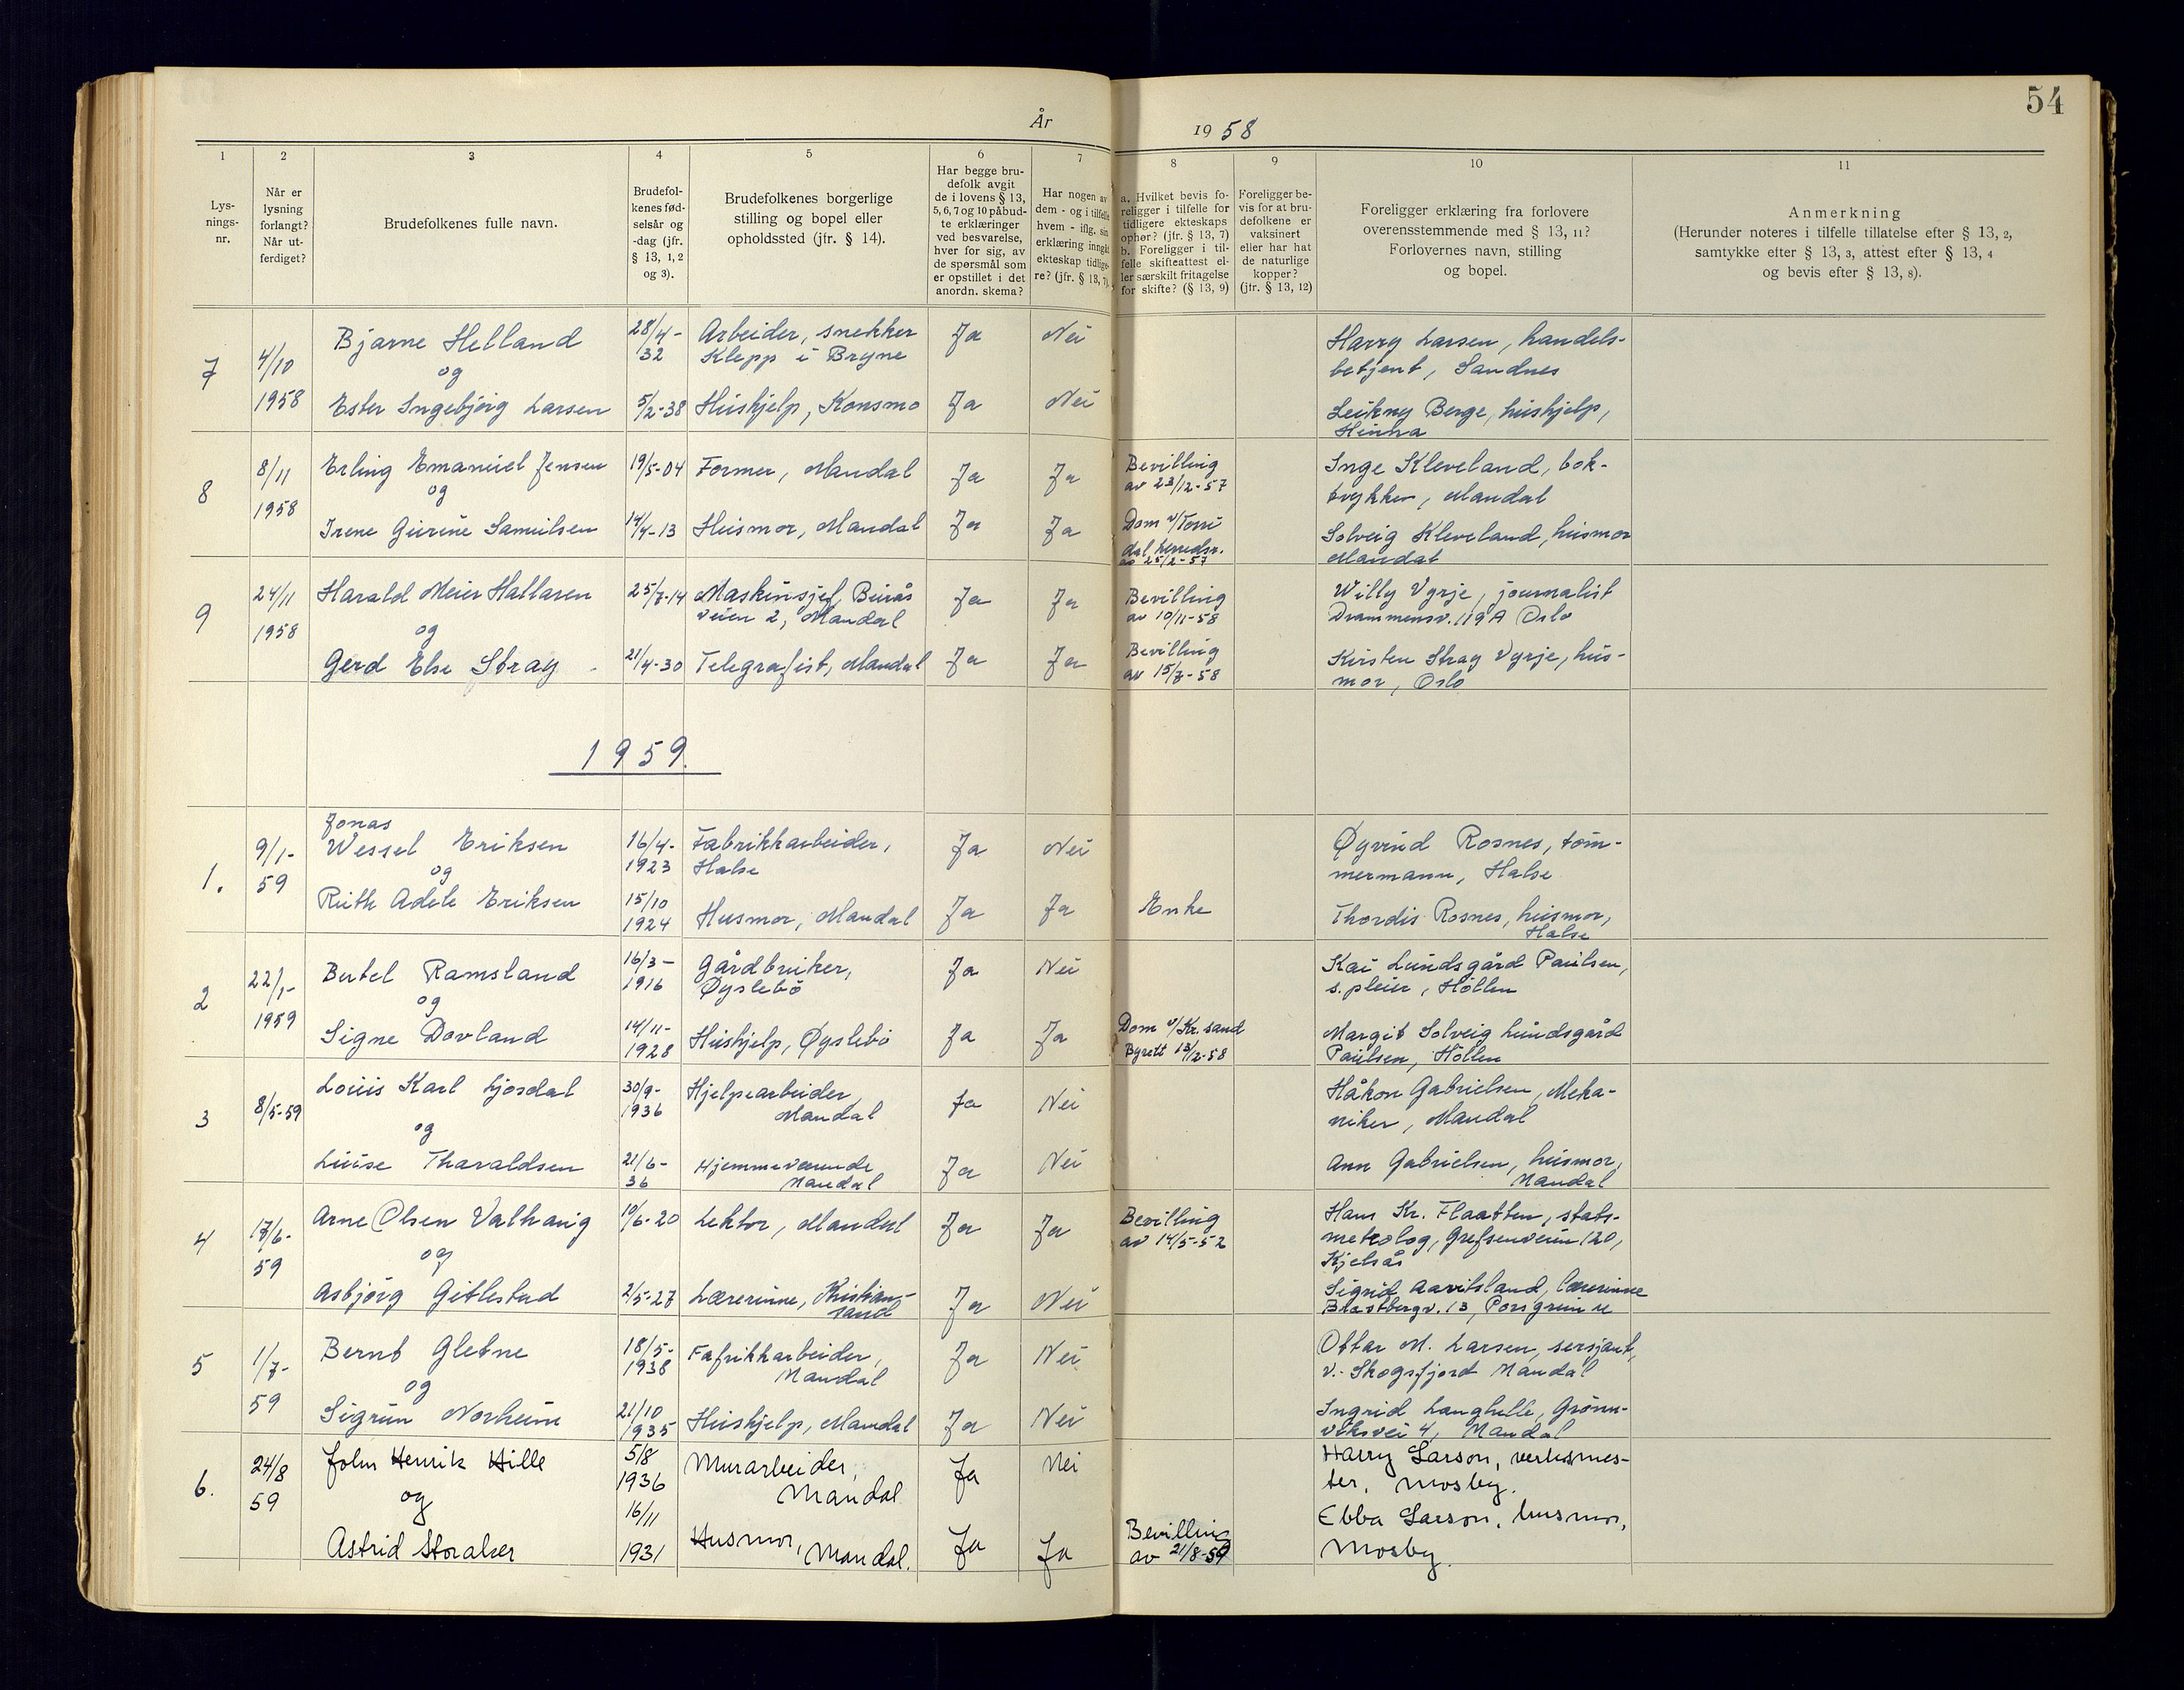 54
År 1958
1 2 3 4 5 6 7 8 9 10 11
Lys-
nings-
nr.
Når er
lysning
forlangt?
Når ut-
ferdiget?
Brudefolkenes fulle navn.
Brudefol-
kenes fød-
selsår og
-dag (jfr.
§ 13, 1, 2
og 3).
Brudefolkenes borgerlige
stilling og bopel eller
opholdssted (jfr. § 14).
Har begge bru-
defolk avgit
de i lovens § 13,
5, 6, 7 og 10 påbud-
te erklæringer
ved besvarelse,
hver for sig, av
de spørsmål som
er opstillet i det
anordn. skema?
Har nogen av
dem - og i tilfelle
hvem - iflg. sin
erklæring inngått
ekteskap tidlige-
re? (jfr. § 13, 7).
a. Hvilket bevis fo-
religger i tilfelle for
tidligere ekteskaps
ophør? (jfr. § 13, 7)
b. Foreligger i til-
felle skifteattest el-
ler særskilt fritagelse
for skifte? (§ 13, 9)
Foreligger be-
vis for at bru-
defolkene er
vaksinert
eller har hat
de naturlige
kopper?
(jfr. § 13, 12)
Foreligger erklæring fra forlovere
overensstemmende med § 13, 11?
Forlovernes navn, stilling
og bopel.
Anmerkning
(Herunder noteres i tilfelle tillatelse efter § 13, 2,
samtykke efter § 13, 3, attest efter § 13, 4
og bevis efter § 13, 8).
7
4/10
1958
Bjarne Helland
og
Ester Ingebjørg Larsen
28/4-
32
5/2-38
Arbeider, snekker
Klepp i Bryne
Hushjelp, Konsmo
Ja
Ja
Nei
Nei
Harry Larsen, handels-
betjent, Sandnes
Leikny Berge, hushjelp,
Hinna
8
8/11
1958
Erling Emanuel Jensen
og
Irene Gurine Samuelsen
19/5-04
14/4-13
Former, Mandal
Husmor, Mandal
Ja
Ja
Ja
Ja
Bevilling
av 23/12-57
Dom v/Torri
dal herredsr.
av 25/2-57
Inge Kleveland, bok-
trykker, Mandal
Solveig Kleveland, husmor
Mandal
9
24/11
1958
Harald Meier Hallaren
og
Gerd Else Stray
25/7-14
21/4-30
Maskinsjef, Buås
veien 2, Mandal
Telegrafist, Mandal
Ja
Ja
Ja
Ja
Bevilling
av 10/11-58
Bevilling
av 15/7-58
Willy Vyrje, journalist
Drammensv. 119A Oslo
Kirsten Stray Vyrje, hus-
mor, Oslo
1959.
1.
9/1-
59
Jonas
Wessel Eriksen
og
Ruth Adele Eriksen
16/4-
1923
15/10
1924
Fabrikkarbeider,
Halse
Husmor, Mandal
Ja
Ja
Nei
Ja
Enke
Øyvind Rosnes, tøm-
mermann, Halse
Thordis Rosnes, husmor,
Halse
2
22/1-
1959
Bertel Ramsland
og
Signe Dovland
16/3-
1916
14/11-
1928
Gårdbruker,
Øyslebø
Hushjelp, Øyslebø
Ja
Ja
Nei
Ja
Dom v/Kr.sand
Byrett 13/2-58
Kai Lundsgård Paulsen,
s.pleier, Høllen
Margit Solveig Lundsgård
Paulsen, Høllen
3
8/5-59
Louis Karl Ljosdal
og
Luise Tharaldsen
30/9-
1936
21/6-
36
Hjelpearbeider,
Mandal
Hjemmeværende
Mandal
Ja
Ja
Nei
Nei
Håkon Gabrielsen, Meka-
niker, Mandal
Ann Gabrielsen, husmor,
Mandal
4
17/6-
59
Arne Olsen Valhaug
og
Asbjørg Gitlestad
10/6-20
2/5-27
Lektor, Mandal
Lærerinne, Kristian-
sand
Ja
Ja
Ja
Nei
Bevilling
av 14/5-52
Hans Kr. Flaatten, stats-
metrolog, Grefsenveien 120,
Kjelsås
Sigrid Aavitsland, lærerinne
13, Porsgrunn
5
1/7-
59
Bernt Gletne
og
Sigrun Norheim
18/5-
1938
21/10
1935
Fafrikkarbeider,
Mandal
Hushjelp, Mandal
Ja
Ja
Nei
Nei
Ottar M. Larsen, sersjant,
v. Skogsfjord Mandal
Ingrid Langhelle, Grønn-
viksvei 4, Mandal
6.
24/8
59
John Henrik Hille
og
Astrid Storaker
5/8
1936
16/11
1931
Murarbeider,
Mandal
Husmor,
Mandal.
Ja
Ja
Nei
Ja
Bevilling
av 21/8-59
Harry Larson, verksmes-
ter, Mosby.
Ebba Larson, husmor,
Mosby.